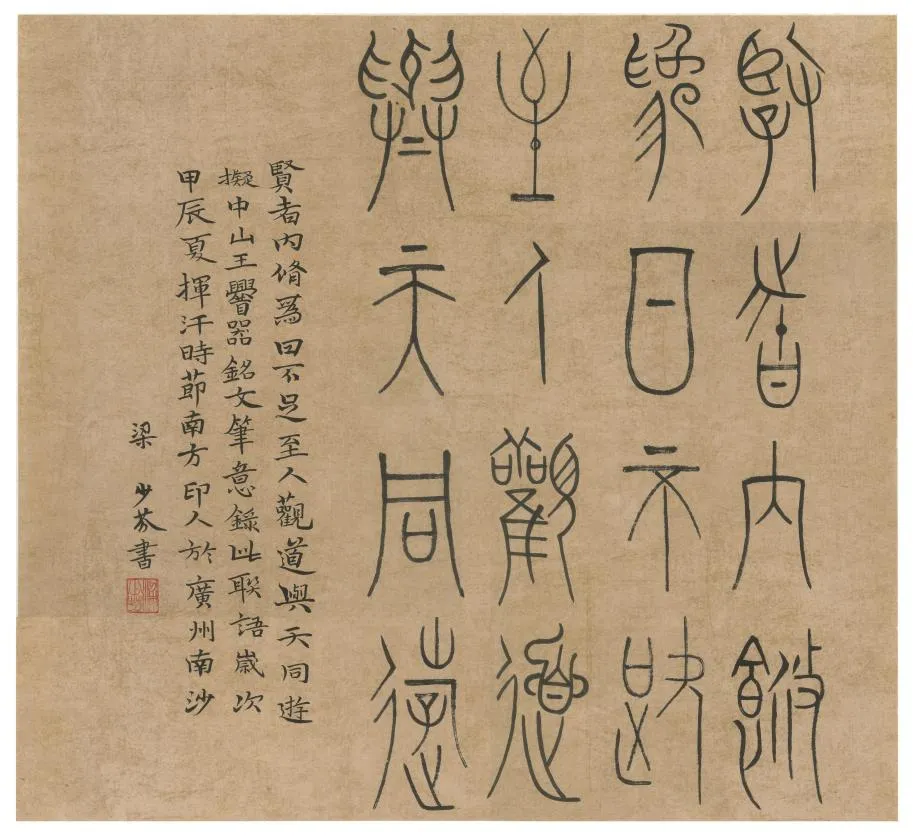 賢者内脩
爲日不足
至人觀道
與天同遊
賢者内脩爲日不足至人觀道與天同遊
擬中山王器銘文筆意錄此聯語歲次
甲辰夏揮汗時節南方印人於廣州南沙
梁少芬書